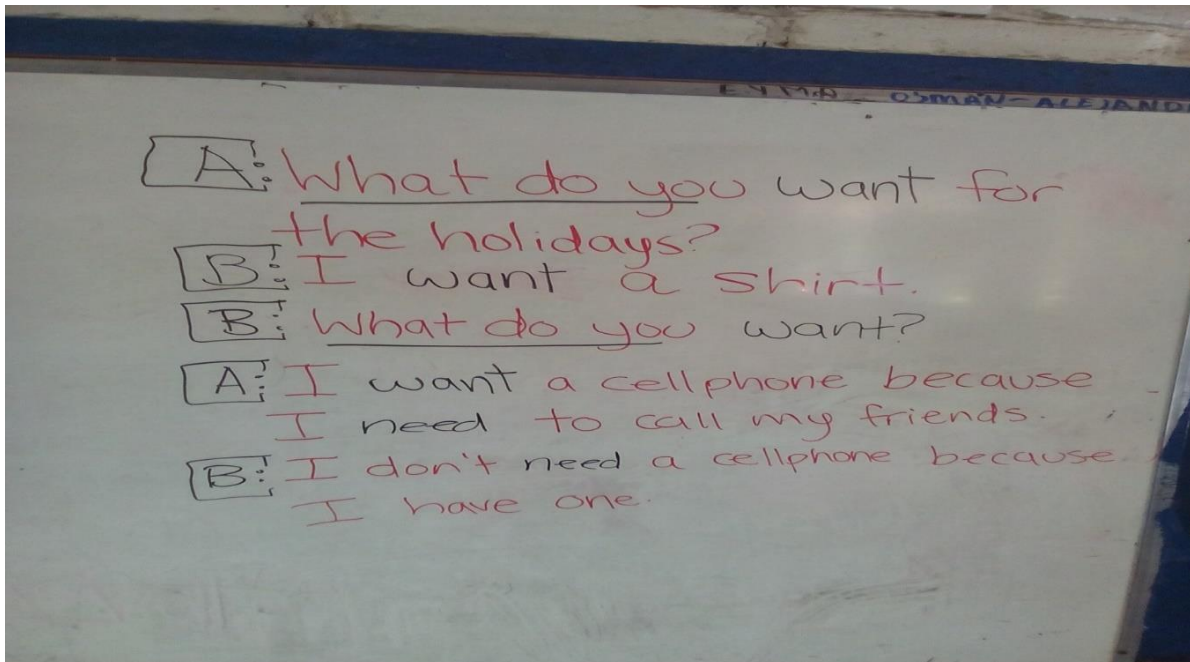 OSMAN-ALEJAND
A: What do you want for
the holidays?
B: I want a shirt.
B: What do you want?
A: I want a cellphone because
I need to call my friends.
B: I don't need a cellphone because
I have one.